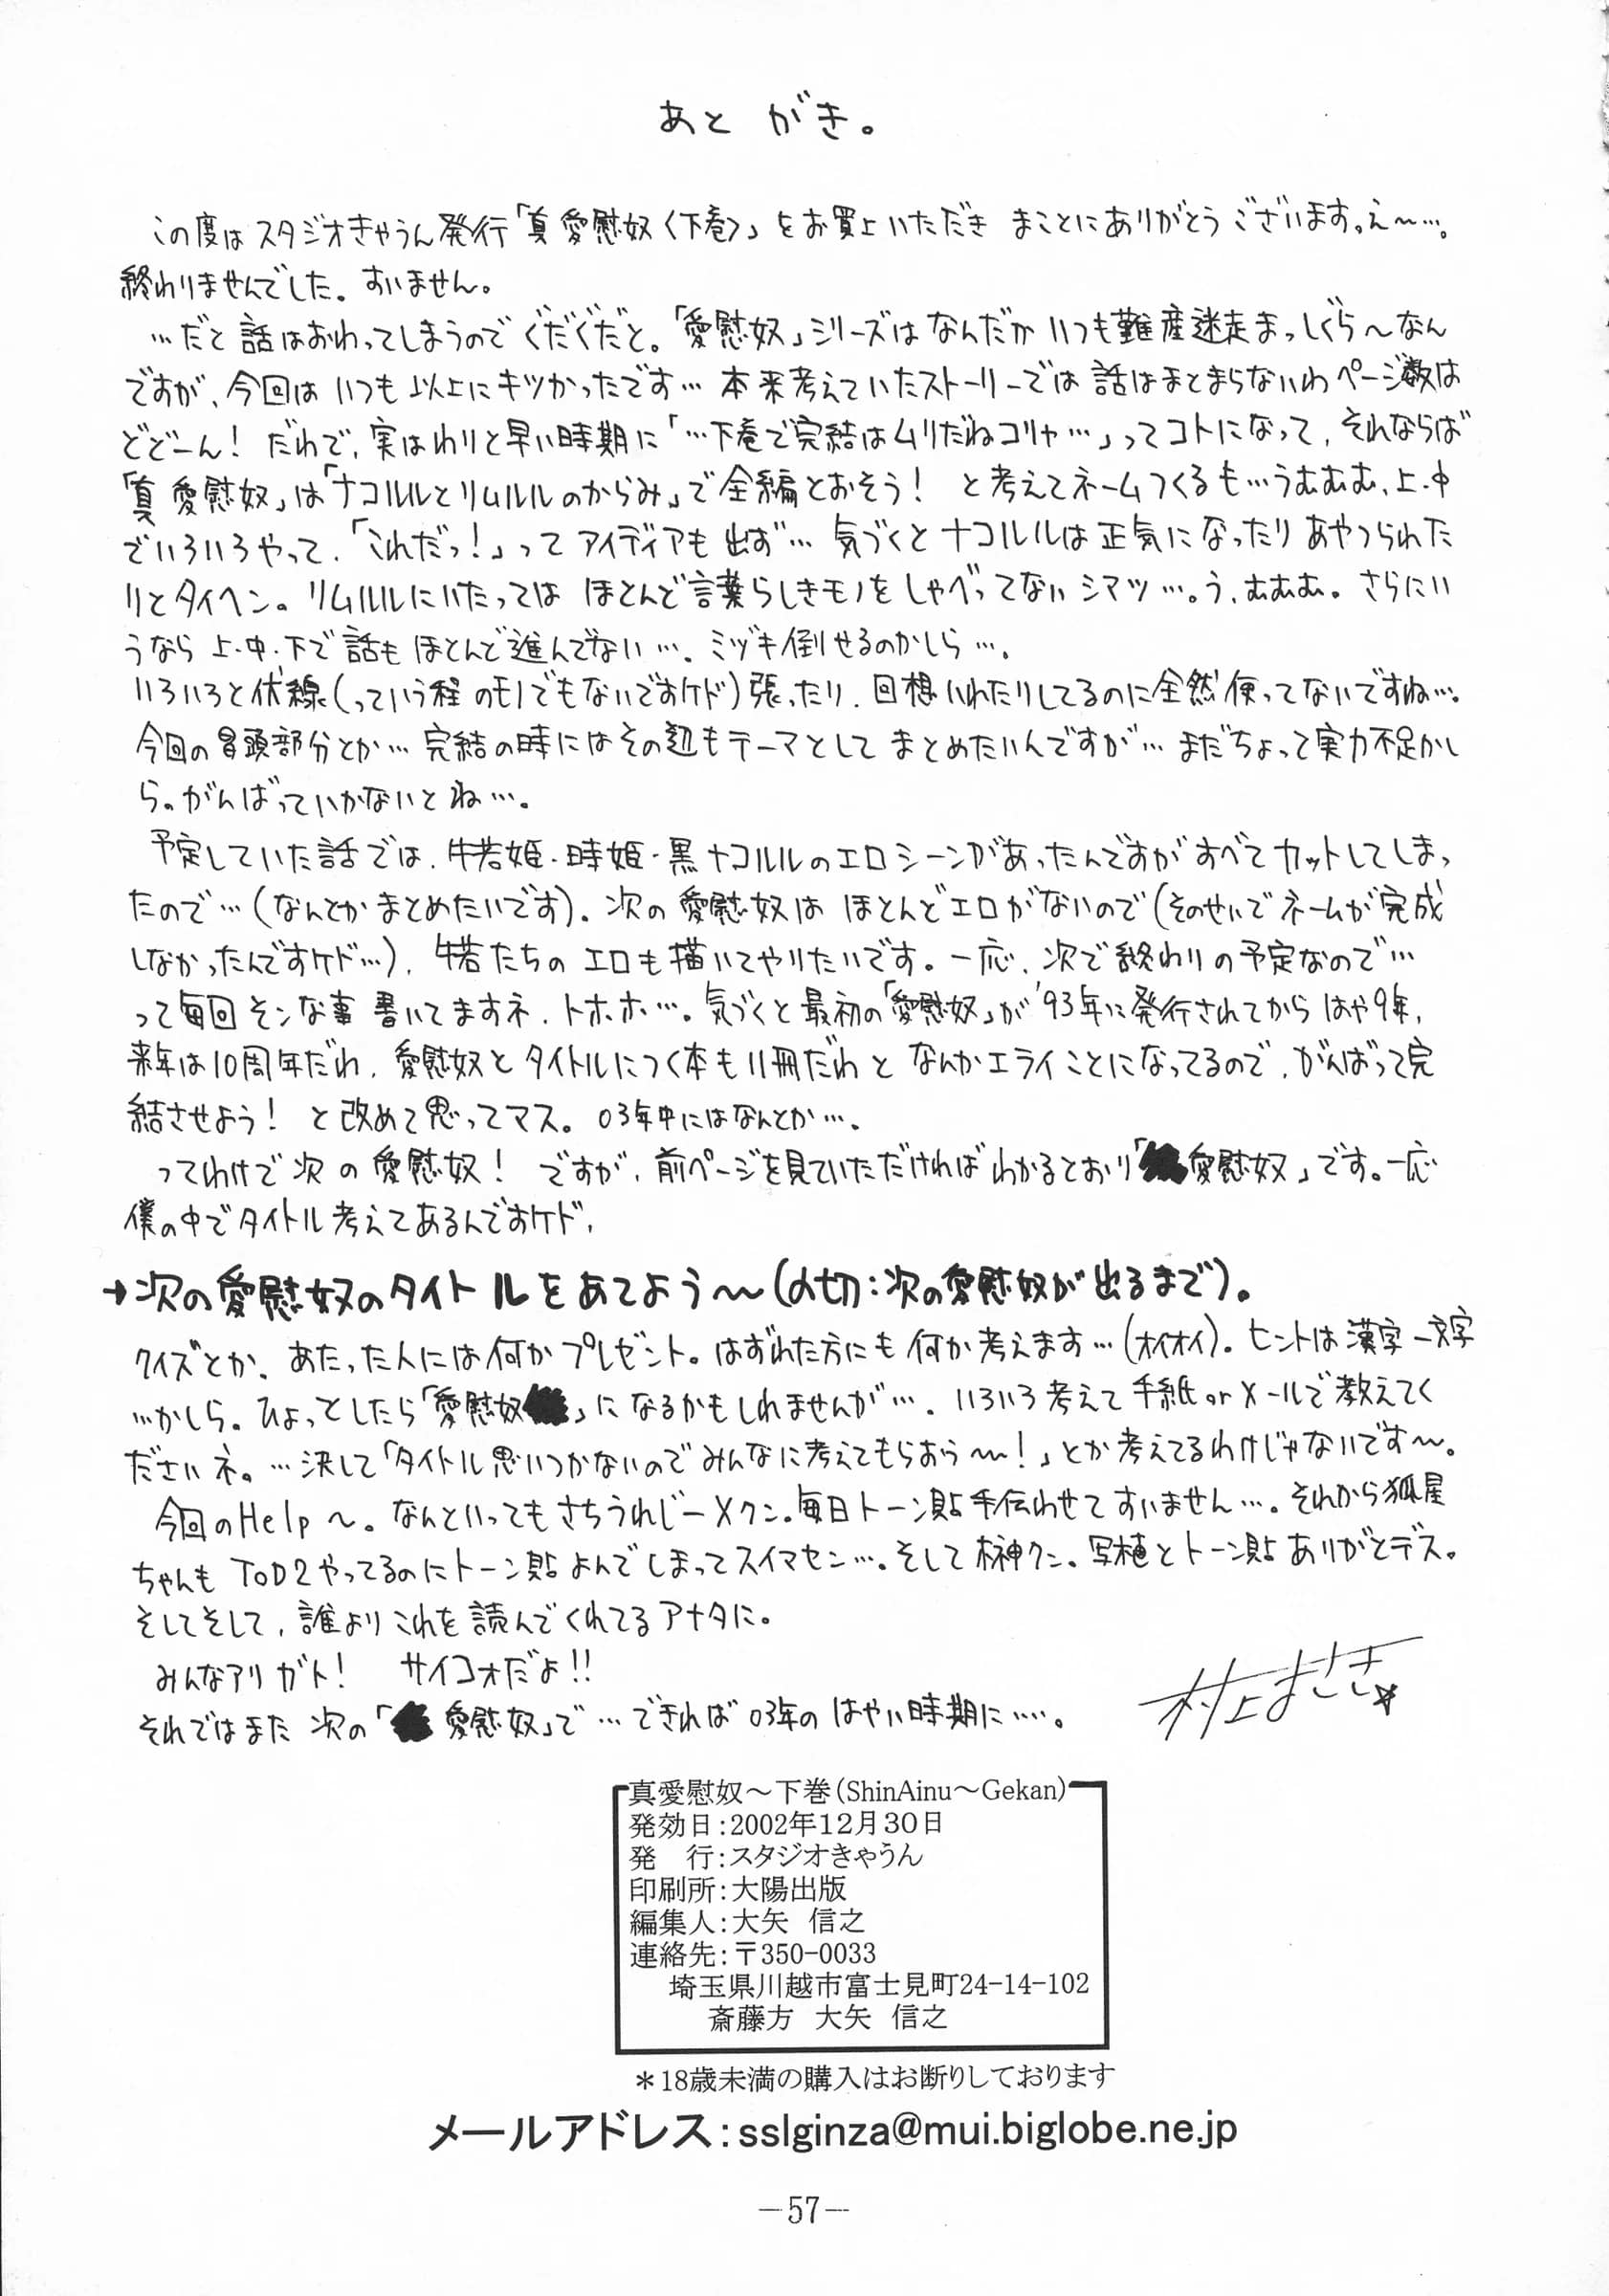 あとがき。
この度はスタジオきゃうん発行「真 愛慰奴〈下巻〉」をお買上いただき まことにありがとうございます。え〜…。
終わりませんでした。すいません。
…だと話はおわってしまうのでぐだぐだと。「愛慰奴」シリーズはなんだかいつも難産迷走まっしぐら〜なん
ですが、今回はいつも以上にキツかったです… 本来考えていたストーリーでは話はまとまらないわページ数は
どどーん! だわで、実はわりと早い時期に「…下巻で完結はムリだねコリャ…」ってコトになって、それならば
「真 愛慰奴」は「ナコルルとリムルルのからみ」で全編とおそう! と考えてネームつくるも…うむむむ、上・中
でいろいろやって、「これだっ!」ってアイディアも出ず… 気づくとナコルルは正気になったりあやつられた
りとタイヘン。リムルルにいたってはほとんど言葉らしきモノをしゃべってないシマツ…。う、むむむ。さらにい
うなら上・中・下で話もほとんど進んでない…。ミヅキ倒せるのかしら…。
いろいろと伏線(っていう程のモノでもないですケド)張ったり、回想いれたりしてるのに全然使ってないですね…。
今回の冒頭部分とか… 完結の時にはその辺もテーマとしてまとめたいんですが… まだちょって実力不足かし
ら。がんばっていかないとね…。
予定していた話では、牛若姫・時姫・黒ナコルルのエロシーンがあったんですがすべてカットしてしまっ
たので…(なんとかまとめたいです)。次の愛慰奴はほとんどエロがないので(そのせいでネームが完成
しなかったんですケド…)、牛若たちのエロも描いてやりたいです。一応、次で終わりの予定なので…
って毎回そンな事書いてますネ、トホホ…。気づくと最初の「愛慰奴」が'93年に発行されてからはや9年、
来年は10周年だわ、愛慰奴とタイトルにつく本も11冊だわとなんかエライことになってるので、がんばって完
結させよう! と改めて思ってマス。03年中にはなんとか…。
ってわけで次の愛慰奴! ですが、前ページを見ていただければわかるとおり「愛慰奴」です。一応
僕の中でタイトル考えてあるんですケド、
→次の愛慰奴のタイトルをあてよう〜(〆切:次の愛慰奴が出るまで)。
クイズとか、あたった人には何かプレゼント。はずれた方にも何か考えます…(オイオイ)。ヒントは漢字一文字
…かしら。ひょっとしたら「愛慰奴」になるかもしれませんが…。いろいろ考えて手紙orメールで教えてく
ださいネ。…決して「タイトル思いつかないのでみんなに考えてもらおう〜!」とか考えてるわけじゃないです〜。
今回のHelp〜。なんといってもさちうれじーメクン。毎日トーン貼手伝わせてすいません…。それから狐星
ちゃんもTOD2やってるのにトーン貼よんでしまってスイマセン…。そして榊クン。写植とトーン貼ありがとデス。
そしてそして、誰よりこれを読んでくれてるアナタに。
みんなアリガト! サイコォだよ!!
それではまた次の「愛慰奴」で…できれば03年のはやい時期に……。
村上まさき
真愛慰奴〜下巻(ShinAinu〜Gekan)
発効日:2002年12月30日
発　行:スタジオきゃうん
印刷所:大陽出版
編集人:大矢　信之
連絡先:〒350-0033
埼玉県川越市富士見町24-14-102
斎藤方　大矢　信之
＊18歳未満の購入はお断りしております
メールアドレス:sslginza@mui.biglobe.ne.jp
―57―